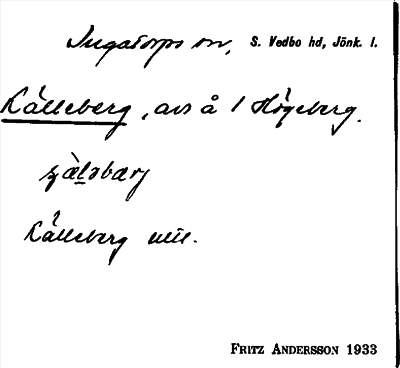 Ingatorps sn, S. Vedbo hd, Jönk. l.
Källeberg, avs å 1 Högeberg.
Källeberg mtl.
FRITZ ANDERSSON 1933